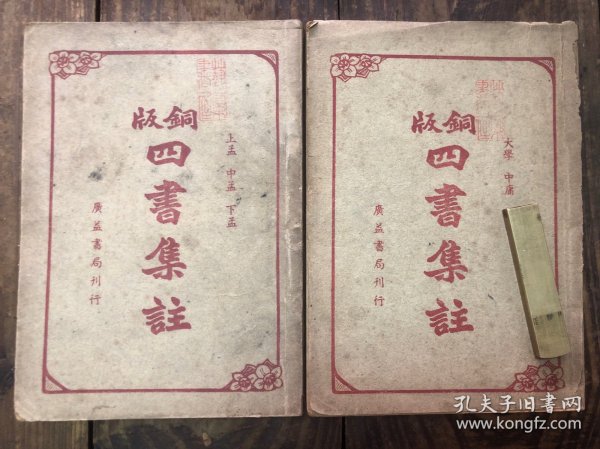 銅版
四書集註
上孟 中孟 下孟
廣益書局刊行
銅版
四書集註
大學 中庸
廣益書局刊行
孔夫子旧书网
www.kongfz.com